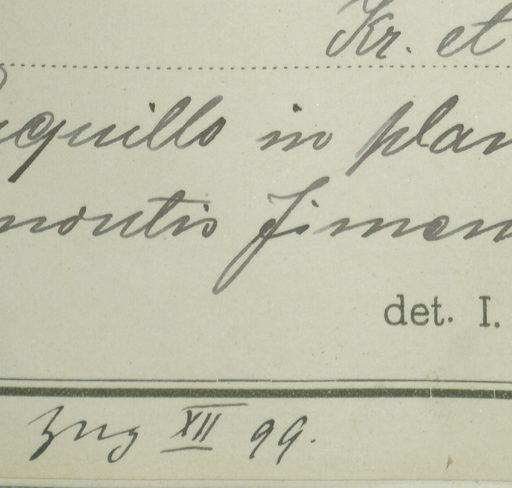 Kr. et
quillo in plan
montis Jimen
det. I.
Zug XII 99.